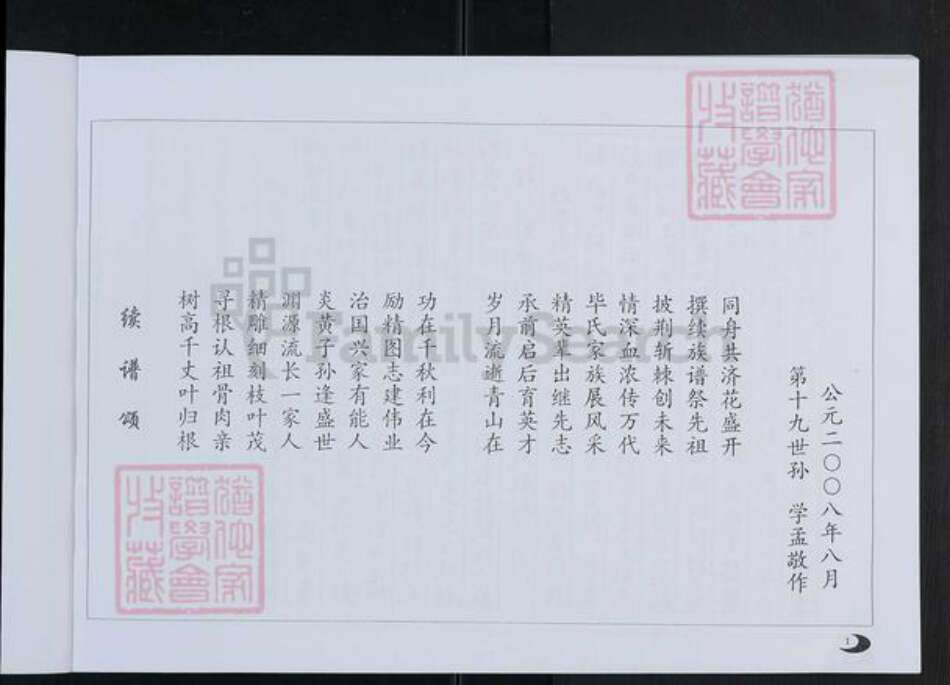 续谱颂
树高千丈叶归根
寻根认祖骨肉亲
精雕细刻枝叶茂
渊源流长一家人
炎黄子孙逢盛世
治国兴家有能人
励精图志建伟业
功在千秋利在今
岁月流逝青山在
承前启后育英才
精英辈出继先志
毕氏家族展风采
情深血浓传万代
披荆斩棘创未来
撰续族谱祭先祖
同舟共济花盛开
第十九世孙 学孟敬作
公元二〇〇八年八月
1
猶他家
譜學會
收藏
猶他家
譜學會
收藏
FamilySearch